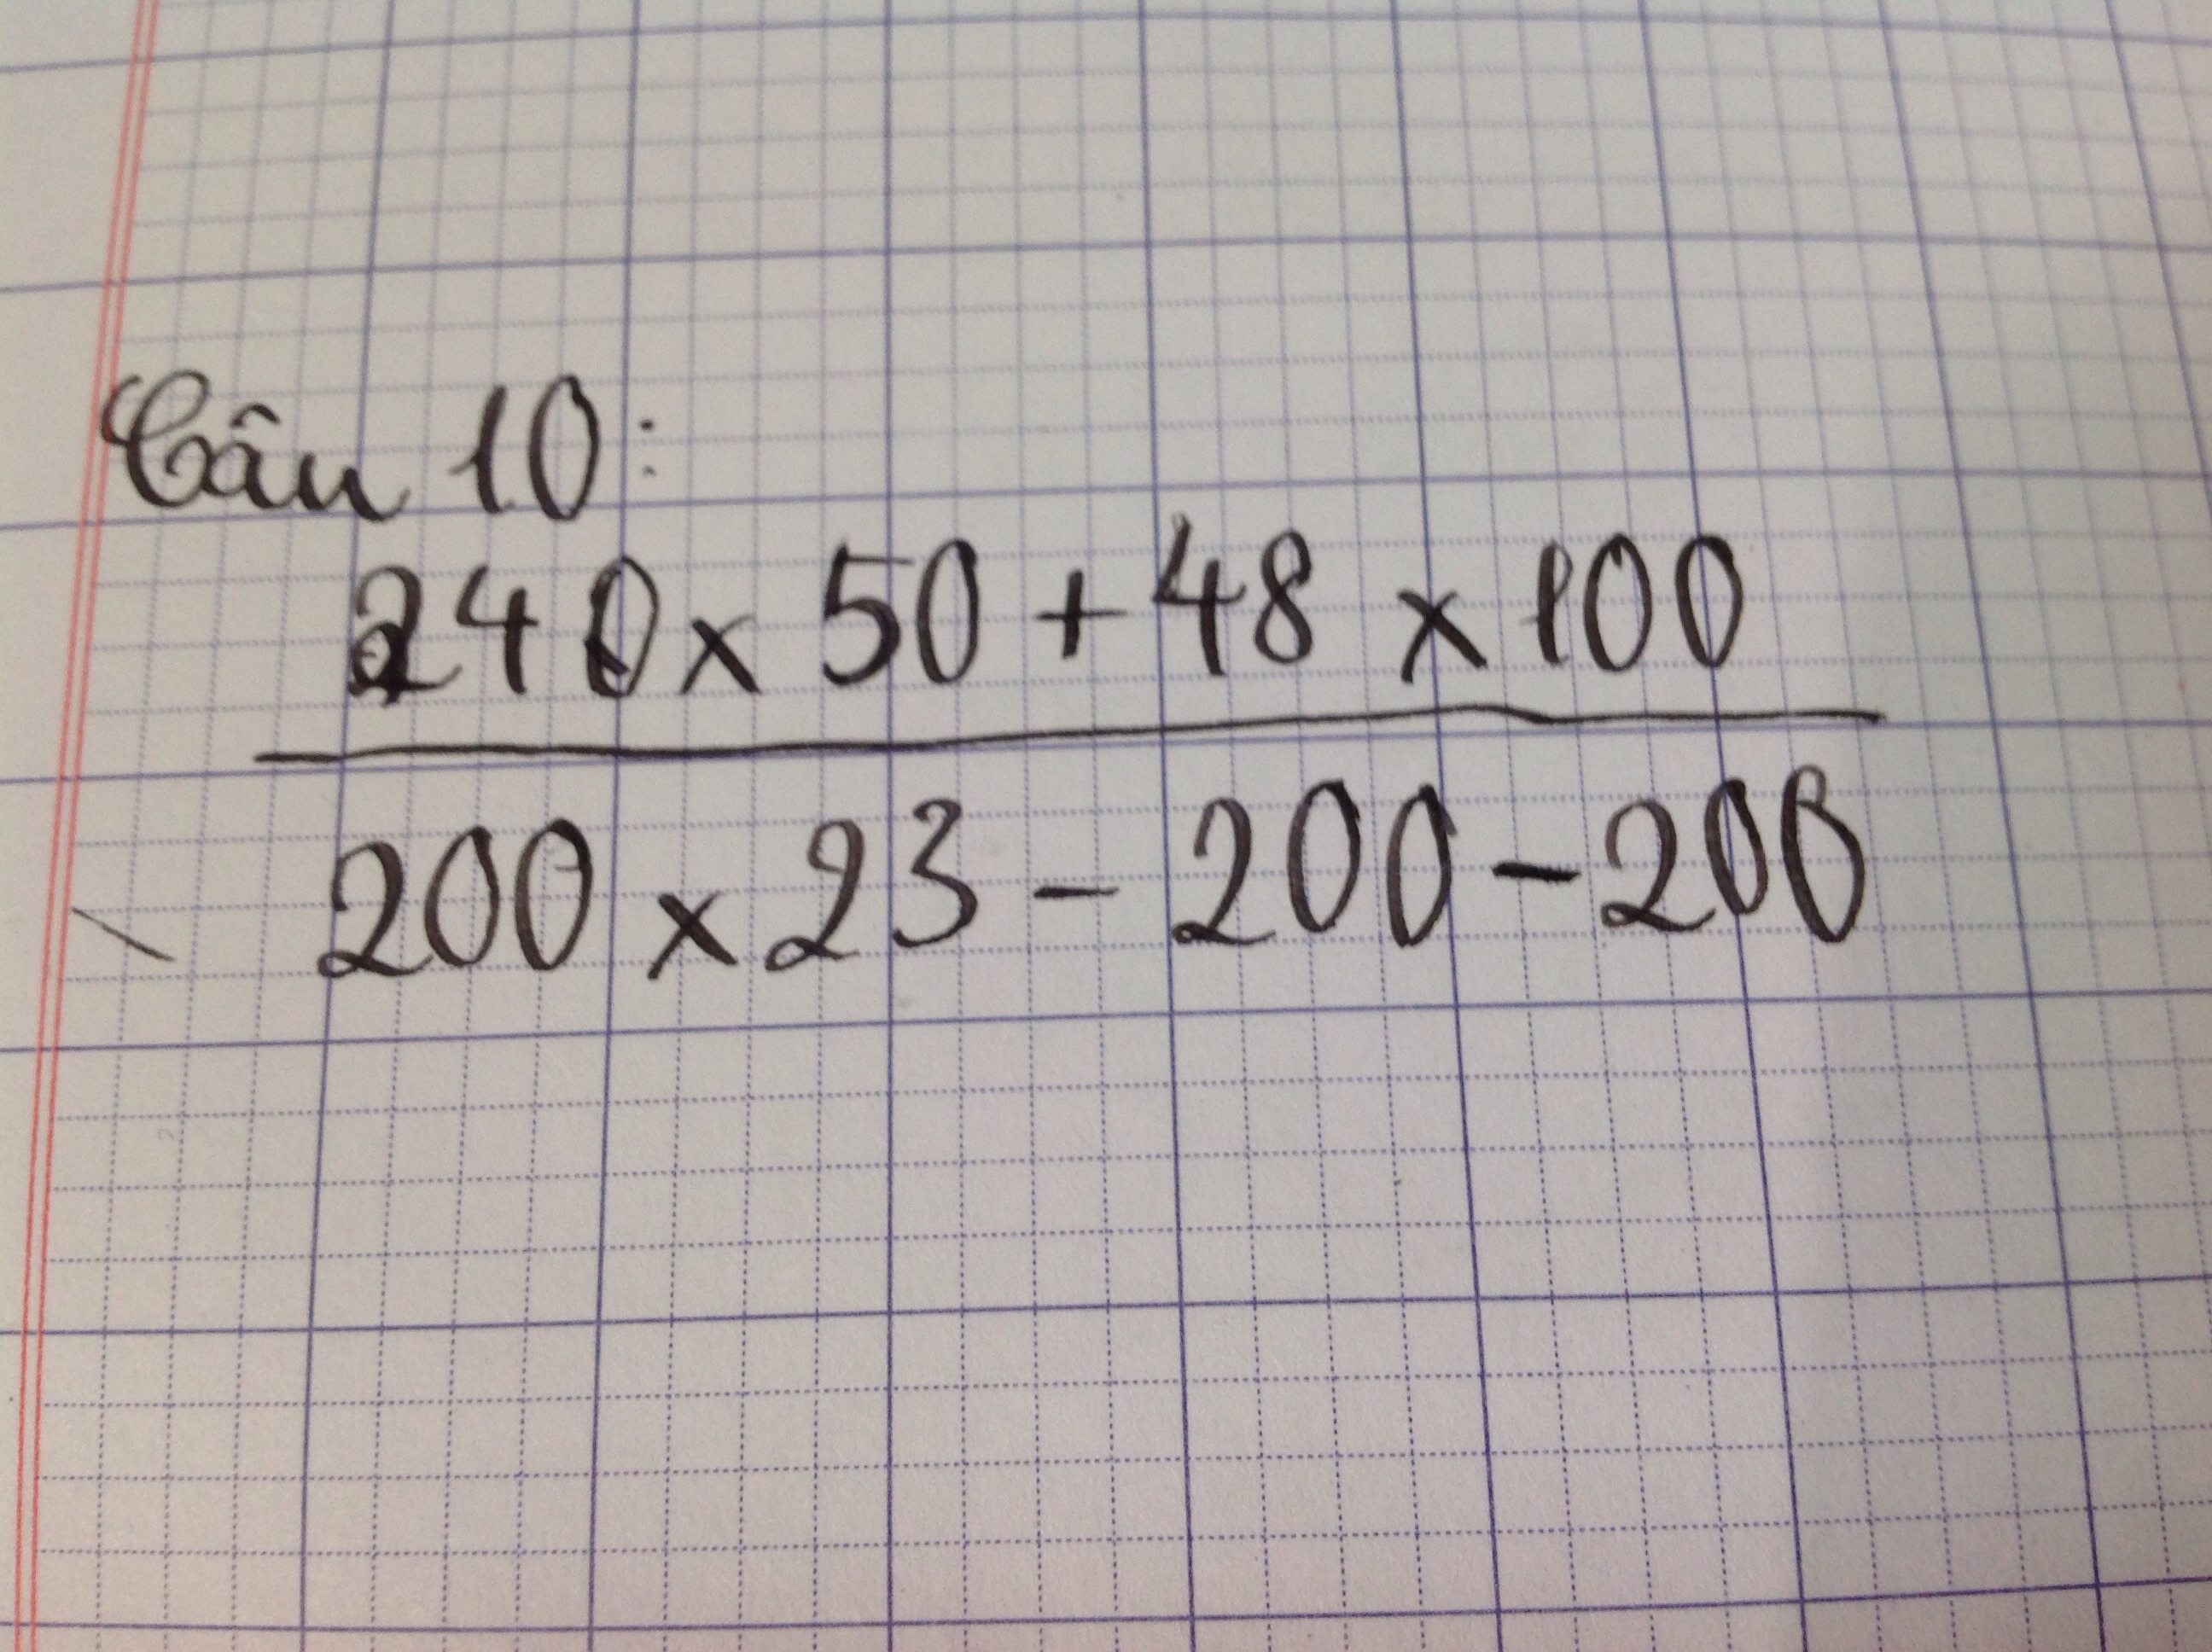 Câu 10:
240 x 50 + 48 x 100
200 x 23 - 200 - 200